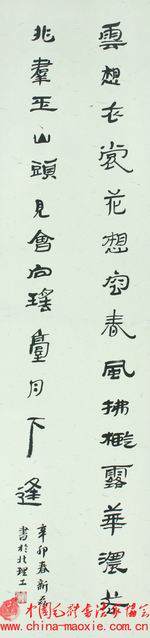 雲想衣裳花想容春風拂檻露華濃若
非羣玉山頭見會向瑤臺月下逢
辛卯春新
書於北理工
www.china-maoxie.com